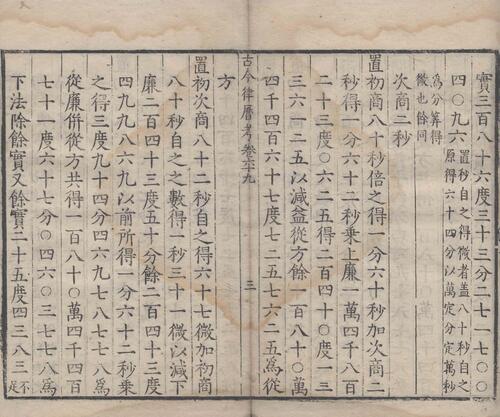 實三百八十六度三十三分二七一七七〇〇
四〇九六置秒自之得微者蓋八十秒自之
原得六十四分以萬定分定萬秒
為分算得
微也餘同
次商二秒
置初商八十秒倍之得一分六十秒加次商二
秒得一分六十二秒乘上廉一萬四千八百
二十三度〇六二五得二百四十〇度一三
三六一二五以減益從方餘一百八十〇萬
四千四百六十七度七二五七六二五為從
古今律曆考 卷六十九 三
方
置初次商八十二秒自之得六十七微加初商
八十秒自之之數得一秒三十一微以減下
廉二百四十三度五十分餘二百四十三度
四九九八六九以前所得一分六十二秒乘
之得三度九十四分四六九七八七七八為
從廉併從方共得一百八十〇萬四千四百
七十一度六十七分〇四六〇三七七八為
下法除餘實又餘實二十五度四三八三不足